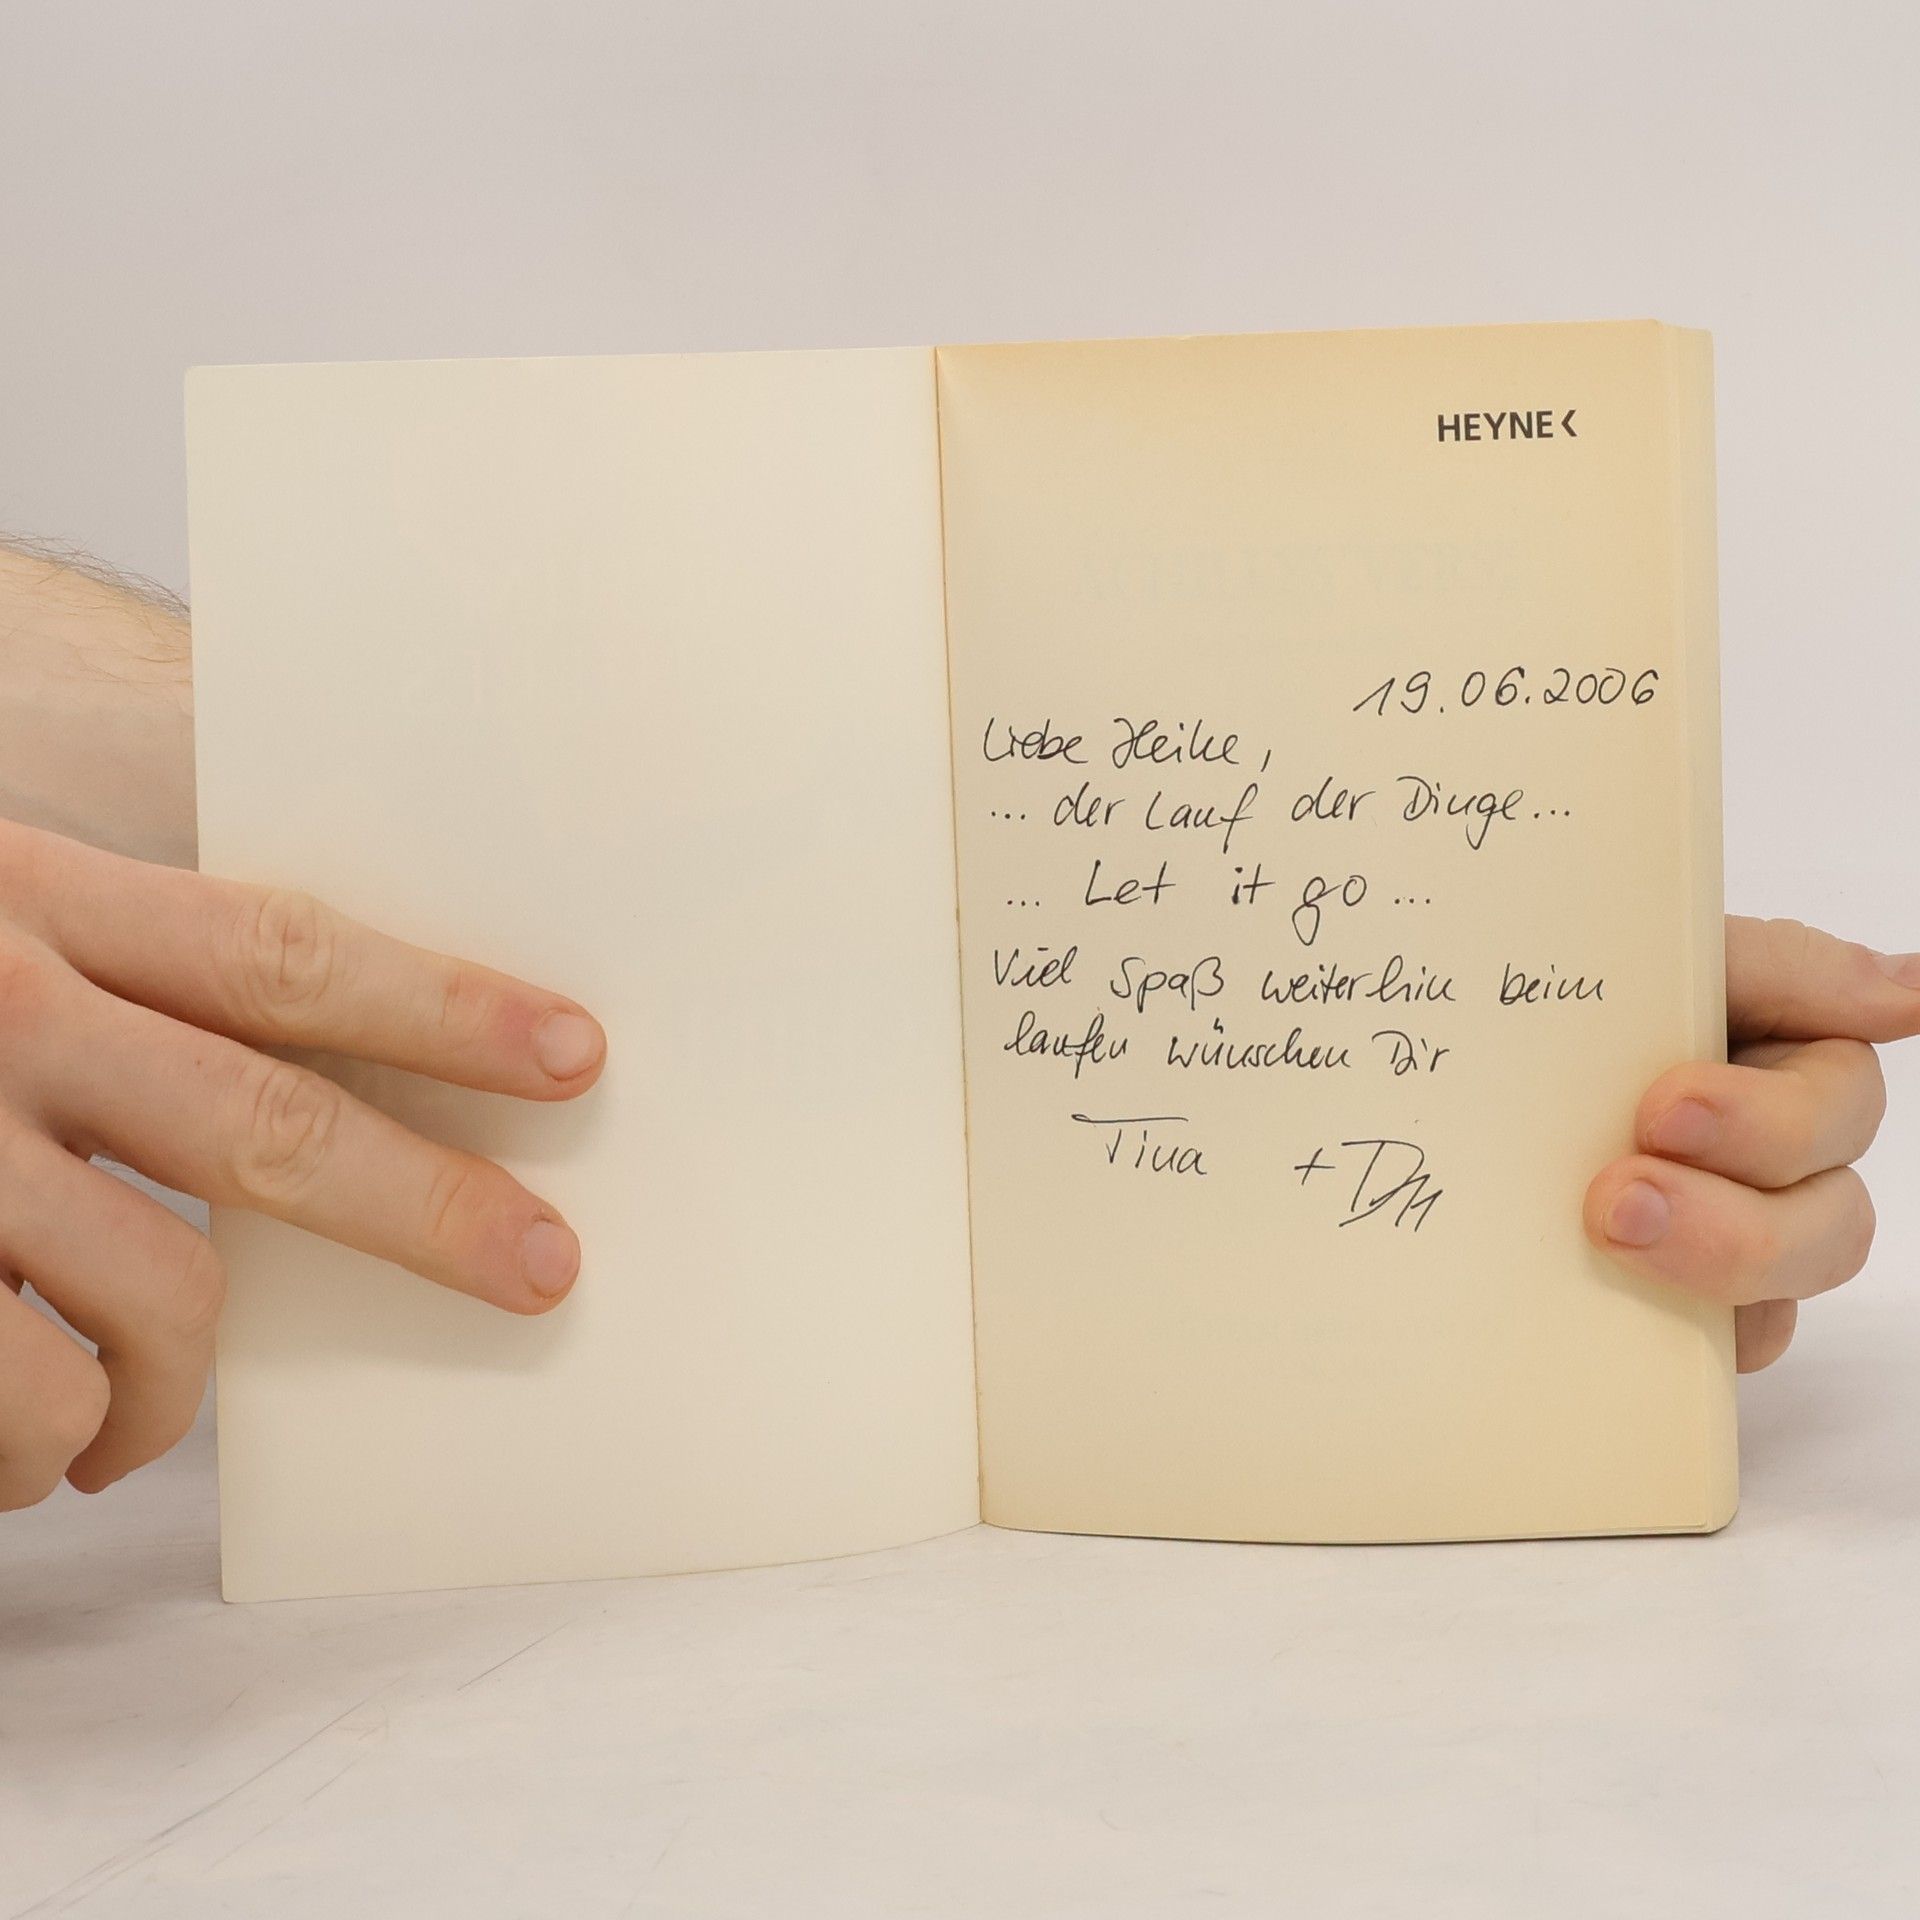 HEYNE<
19.06.2006
Liebe Heike,
... der Lauf der Dinge...
... Let it go ...
Viel Spaß weiterhin beim
laufen wünschen Dir
Tina +